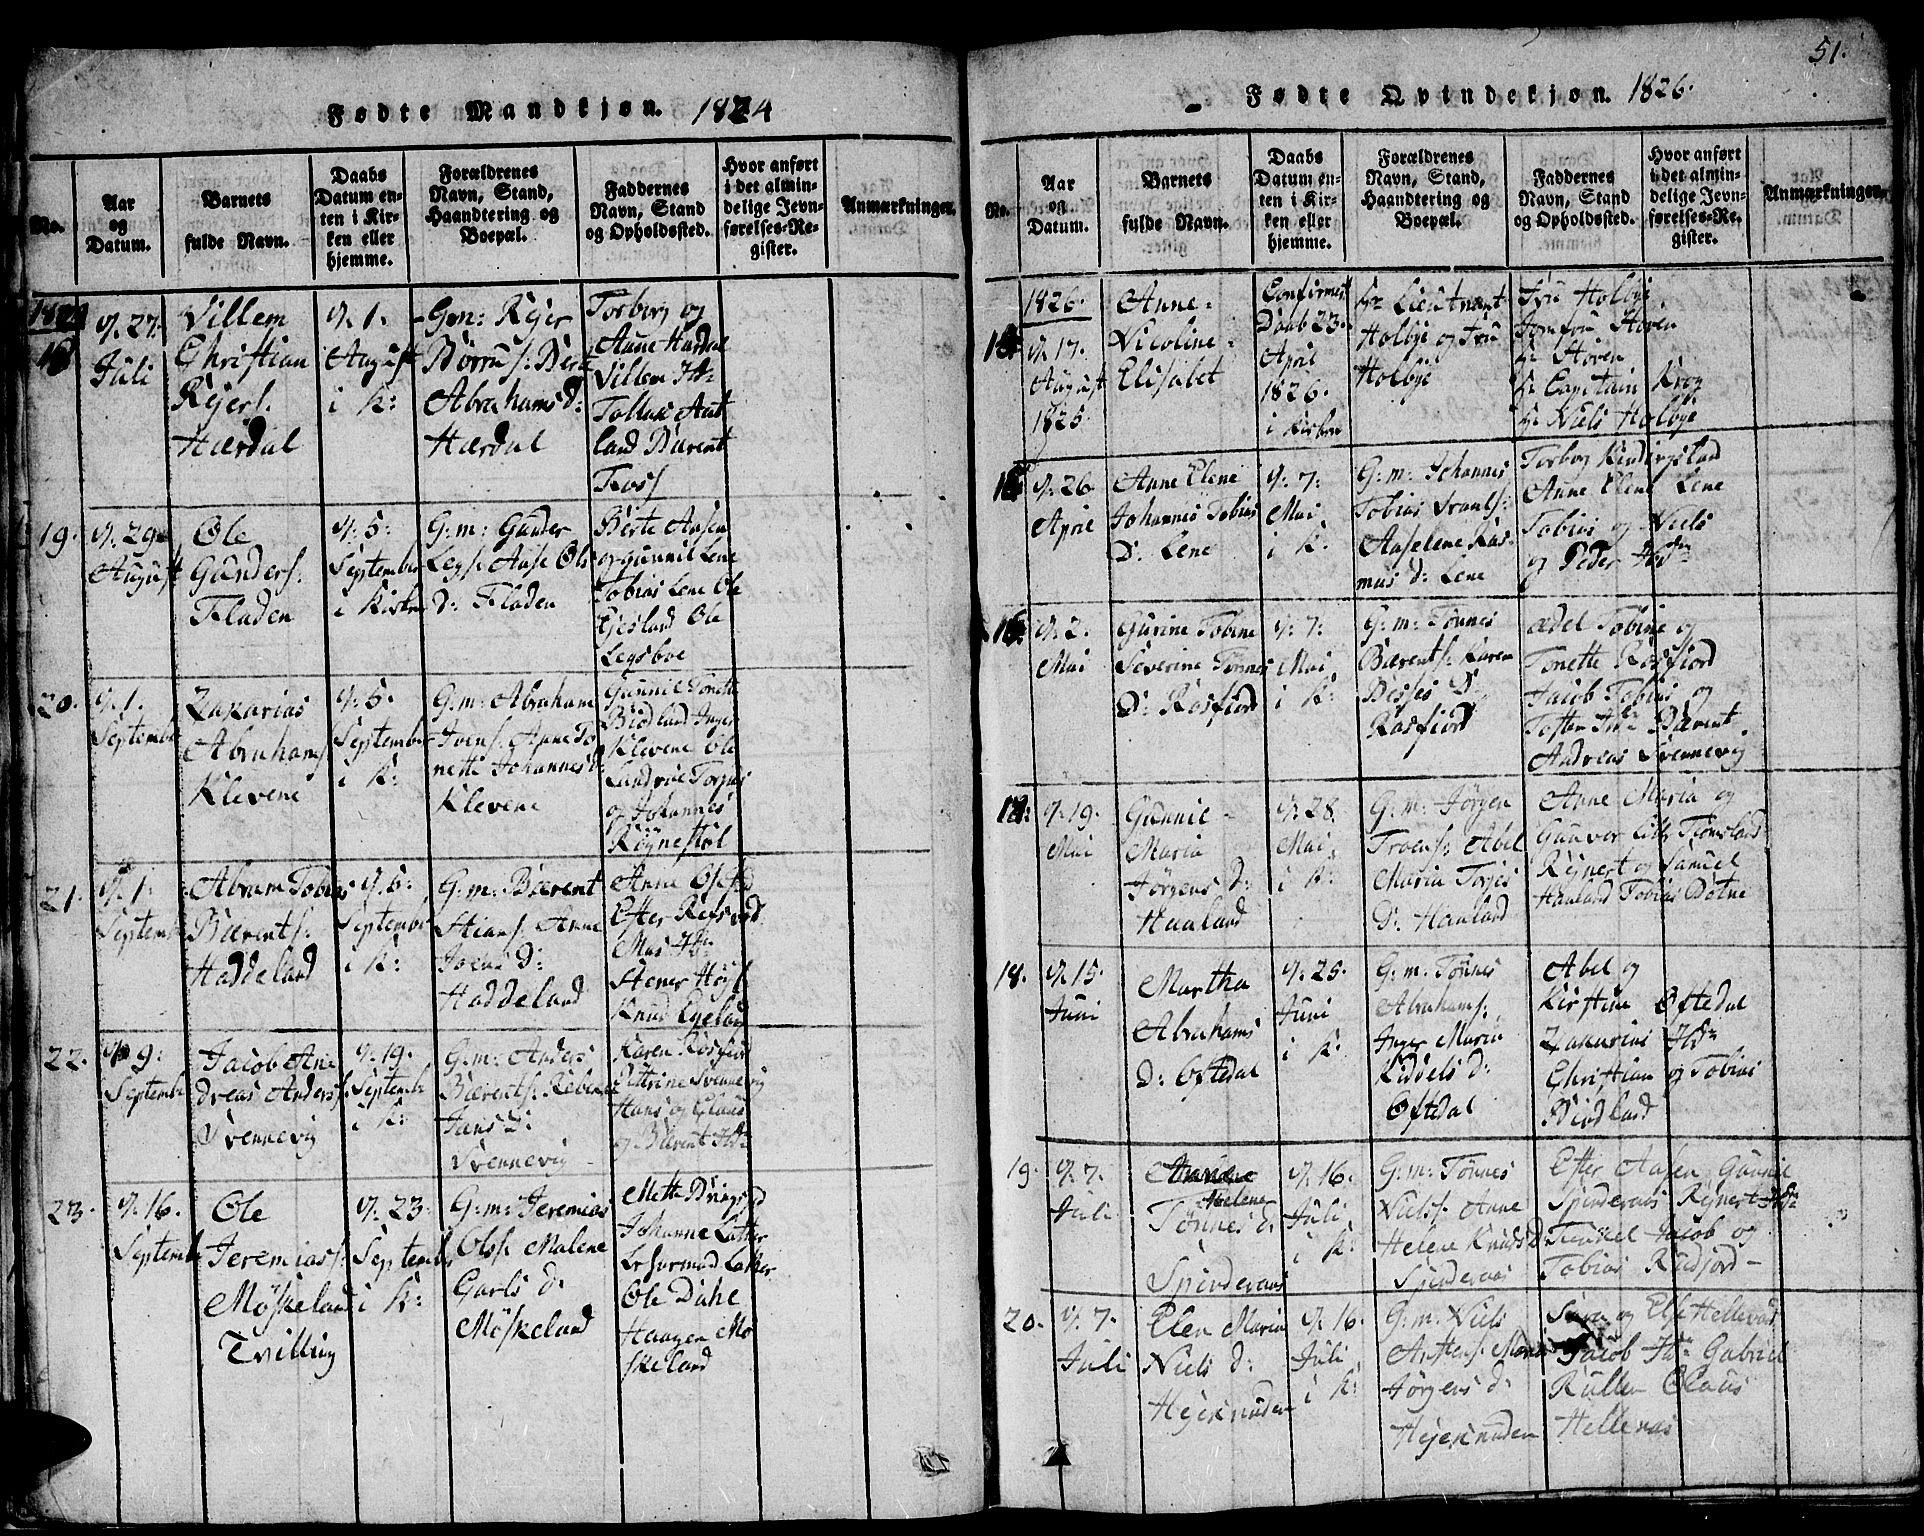 51.
Fødte Mandkjøn. 1824
No.
Aar
og
Datum.
Barnets
fulde Navn.
Daabs
Datum en-
ten i Kir-
ken eller
hjemme.
Forældrenes
Navn, Stand,
Haandtering og
Boepæl.
Faddernes
Navn, Stand
og Opholdssted.
Hvor anført
i det almin-
delige Jevn-
førelses-Re-
gister.
Anmærkninger.
1824
18
d. 27.
Juli
Villem
Christian
Rejers.
Hærdal
d. 1.
August
i K:
G.m: Rejer
Børrus. Berte
Abrahams d:
Hærdal
Torborg og
Anne Hærdal
Villem Ibm
Tollas Aut
land Bærent
Foss
19.
d. 29
August
Ole
Gunders:
Fladen
d. 5.
September
i Kirken
G.m: Gunder
Legs. Aase Ols
d: Fladen
Berte Aasen
og Gunnil Lene
Tobias Lene Ole
Egeland Ole
Legsboe
20.
d. 1.
September
Zakarias
Abrahams
Klevene
d. 5.
September
i K:
G.m: Abraham
Joens. Anne To
nette Johannes d:
Klevene
Gunnil Tonette
Biodland Inger
Klevene Ole
Landrøe Torjus
og Johannes
Røynestøl
21.
d. 1.
September
Abram Tobias
Bærents:
Haddeland
d. 5.
September
i K:
G.m: Bærent
Stians. Anne
Joens D:
Haddeland
Anne Ofsted
Efter Refsved
Mus Ibm
Stener Høyl
Knud Egeland
22.
d. 9.
September
Jacob An
dreas Anders:
Svennevig
d. 19.
September
i K:
G:m: Anders
Bærents. Rebecca
Jans D:
Svennevig
Karen Rosfiord
Pettrine Svennevig
Hans og Claus
og Bærent Ibm
23.
d. 16.
September
Ole
Jeremias:
Møskeland
Tvilling
d. 23.
September
i K:
G:m: Jeremias
Ols. Malene
Carls d:
Møskeland
Mette Bringsjord
Johanne Lotter
Ole Dahl
Haagen Mø
skeland
Fødte Qvindekjøn. 1826.
No.
Aar
og
Datum.
Barnets
fulde Navn.
Daabs
Datum en-
ten i Kir-
ken eller
hjemme.
Forældrenes
Navn, Stand,
Haandtering og
Boepæl.
Faddernes
Navn, Stand
og Opholdssted.
Hvor anført
i det almin-
delige Jevn-
førelses-Re-
gister.
Anmærkninger.
1826.
d. 17.
August
1825
Anne
Nicoline
Elisabet
Confirmert
Daab 23.
April
1826.
i Kirken
Hr Lieutnant
Holbye og Fru
Holbye
Fru Holbye
Jomfru Støren
Hr Støren
Hr Capitain Krog
Hr Niels Holbye
d. 26
April
Anne Elene
Johannes Tobias
D: Lene
d: 7.
Mai
i K:
G: m: Johannes
Tobias Svends:
Aaselene Ras
mus d: Lene
Torborg Rindingsland
Anne Elene Lene
Tobias og Niels
og Peder Ibdm
16.
d. 2.
Mai
Gurine Tobine
Severine Tønnes
D: Rosfiord
d: 7.
Mai
i K:
G: m: Tønnes
Bærents. Karen
Besses D:
Rosfiord
Ædel Tobine og
Tonette Rosfiord
Jacob Tobias og
Tosten Ibm Bærent
Andreas Svennevig
d. 19.
Mai
Gunnil
Maria
Jørgens d:
Haaland
d. 28.
Mai
i K:
G: m: Jørgen
Troens. Abel
Maria Torjes
D: Haaland
Anne Maria og
Gunvor Lille Tiomsland
Rejnert og Samuel
Haaland Tobias Bøtne
18.
d. 15.
Juni
Martha
Abrahams
D: Oftedal
d. 25.
Juni
i K:
G. m: Tønnes
Abrahams.
Inger Maria
Kiddels d:
Oftedal
Abel og
Kirstine Oftedal
Zakarias Ibm
Christian og Tobias
Biodland
19.
d. 7.
Juli
Helene
Tønnes d:
Spinderaas
d. 16.
Juli
i K:
G: m: Tønnes
Niels. Anne
Helene Knuds D
Spinderaas
Efter Aasen Gunnil
Spinderaas Rejnert Ibm
Tenkel Jacob og
Tobias Rudjord
20.
d. 7.
Juli
Elen Maria
Niels d:
Hejeknuden
d. 16.
Juli
i K:
G: m. Niels
Antens. Maria
Jørgens d:
Hejeknuden
Siren og Else Hellevaa
Jacob Ibm Gabriel
Rullen Claus
Helleraas